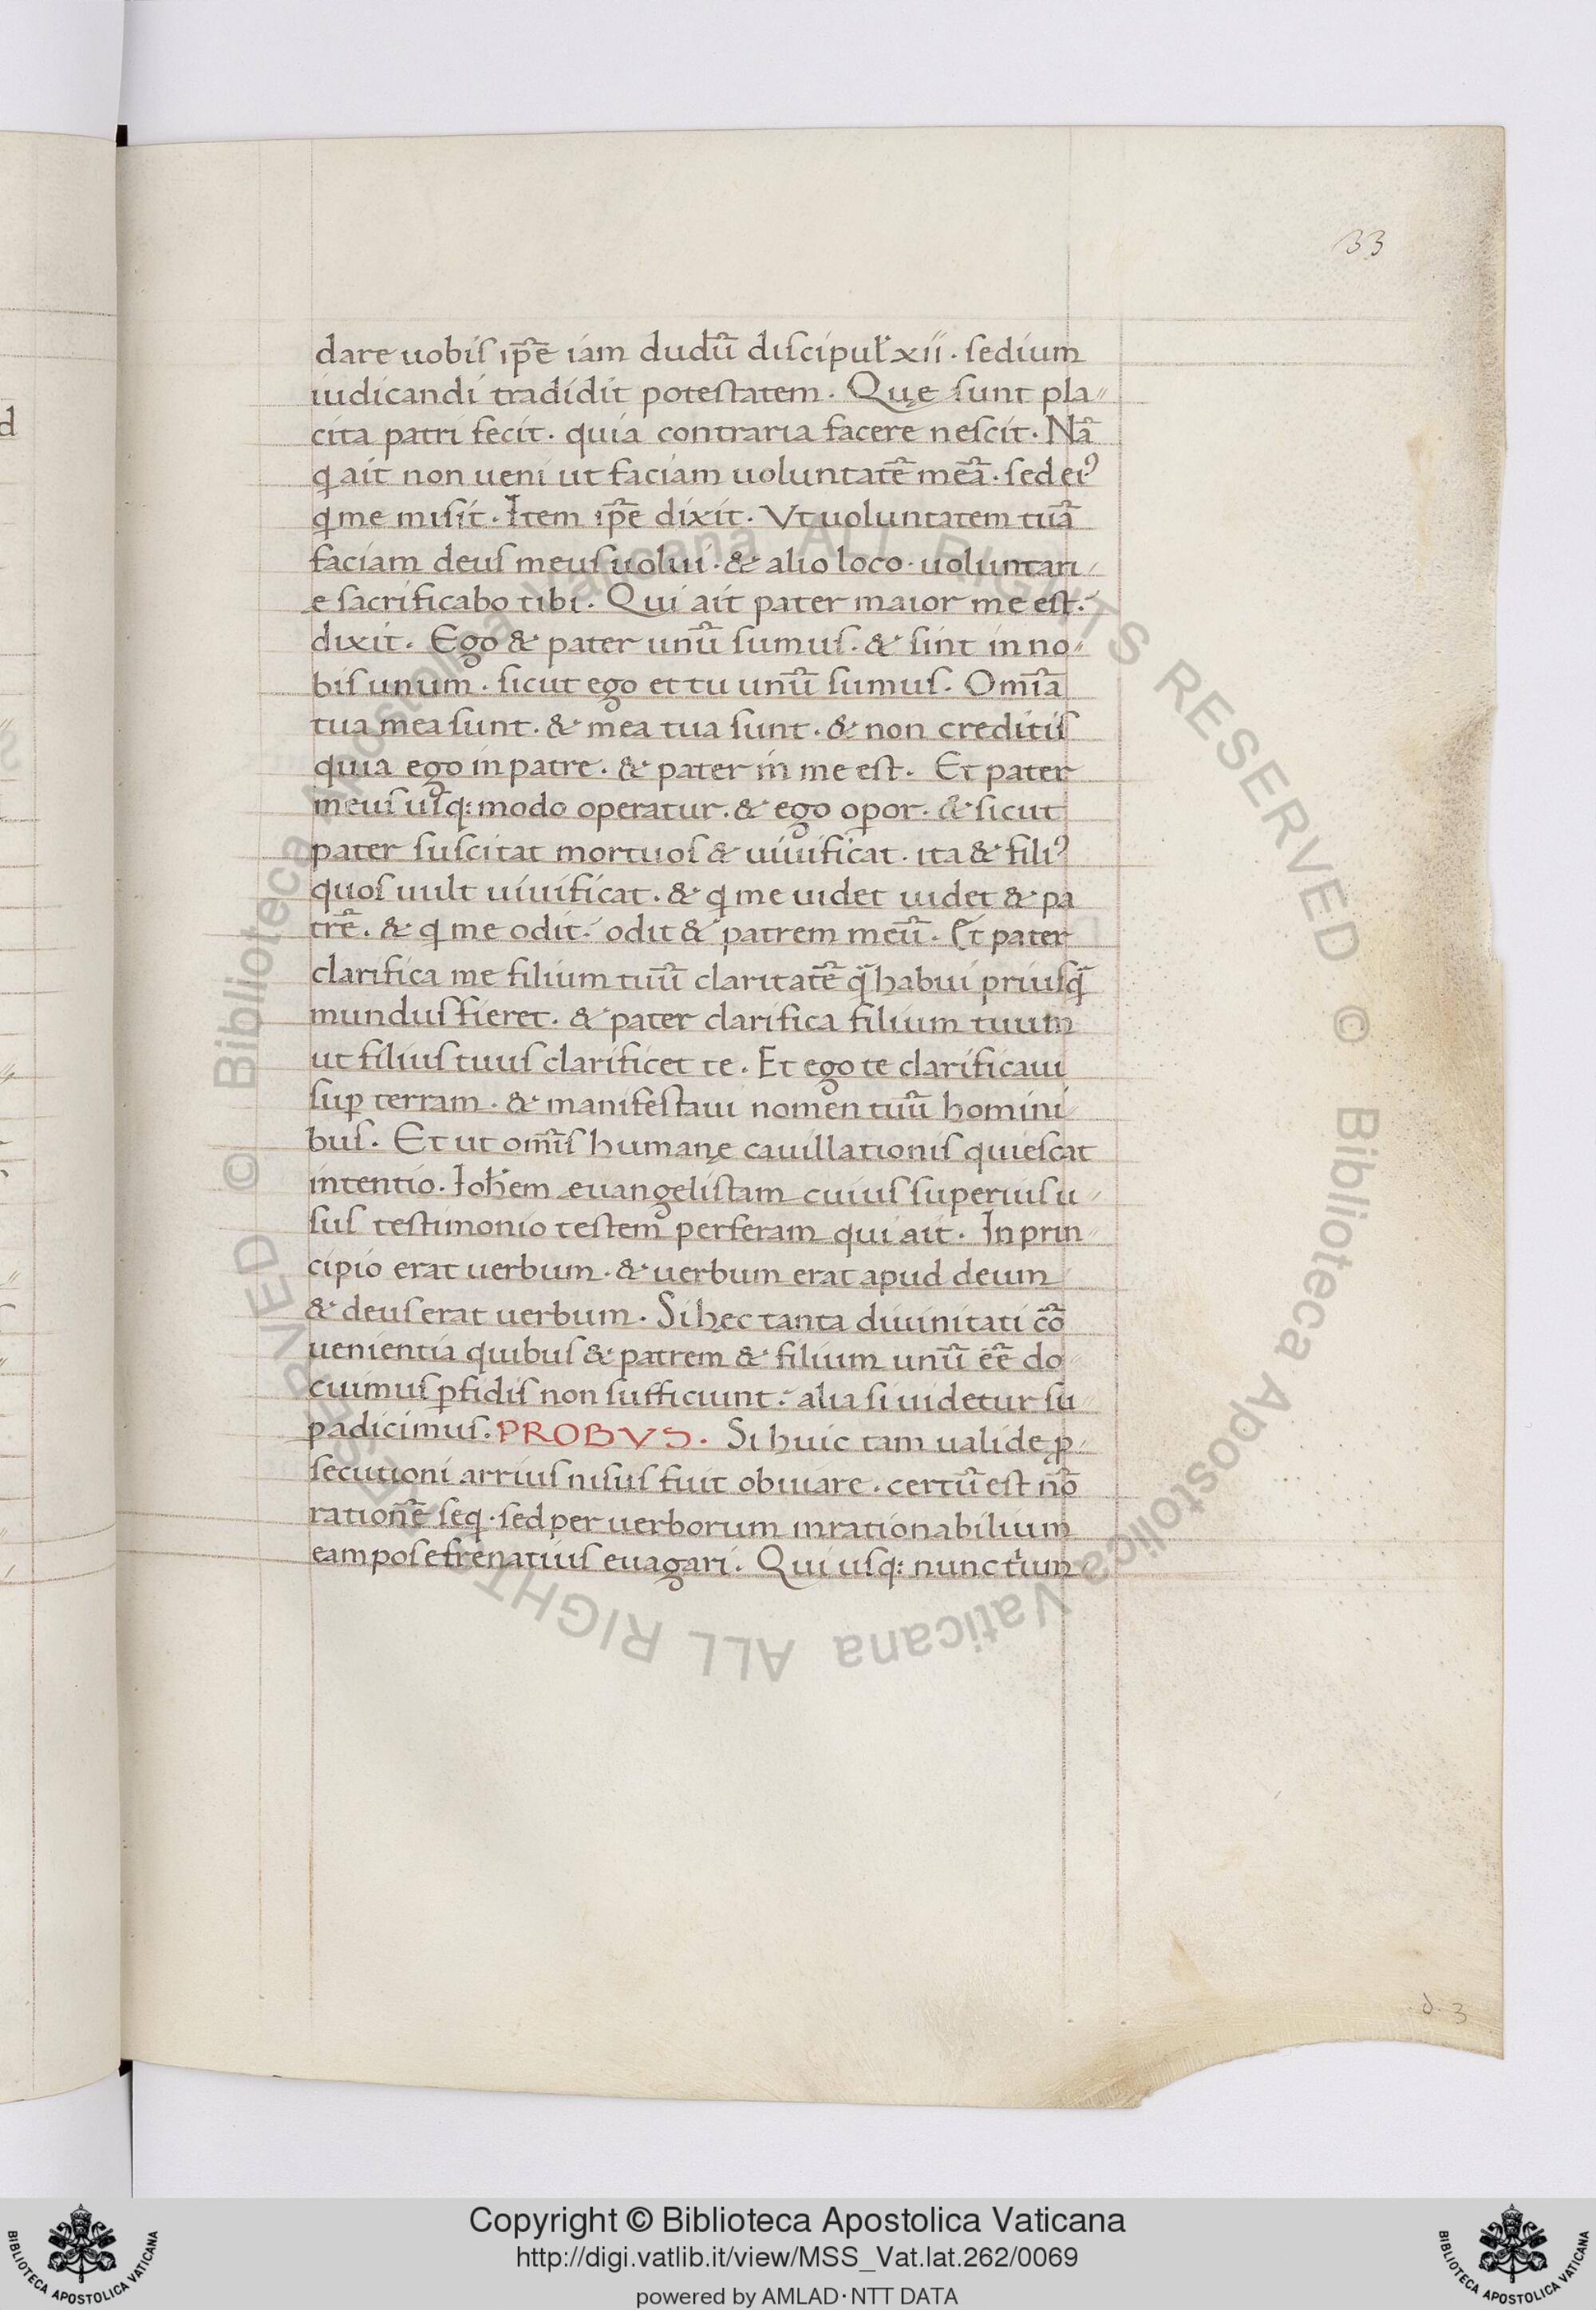 33
dare uobis ip̃e iam dudũ discipul̃ xii. sedium
iudicandi tradidit potestatem. Quę sunt pla
cita patri fecit. quia contraria facere nescit. Nã
q ait non ueni ut faciam uoluntatẽ meã. sed ei⁹
q me misit. Item ip̃e dixit. Vt uoluntatem tuã
faciam deus meus uolui. & alio loco. uoluntari
e sacrificabo tibi. Qui ait pater maior me est.
dixit. Ego & pater unũ sumus. & sint in no
bis unum. sicut ego et tu unũ sumus. Om̃ia
tua mea sunt. & mea tua sunt. & non creditis
quia ego in patre. & pater in me est. Et pater
meus usq: modo operatur. & ego oꝑor. & sicut
pater suscitat mortuos & uiuificat. ita & fili⁹
quos uult uiuificat. & q me uidet uidet & pa
trẽ. & q me odit. odit & patrem meũ. Et pater
clarifica me filium tuũ claritatẽ q̃ habui priusq̃
mundus fieret. & pater clarifica filium tuum
ut filius tuus clarificet te. Et ego te clarificaui
suꝑ terram. & manifestaui nomen tuũ homini
bus. Et ut om̃is humanę cauillationis quiescat
intentio. Ioh̃em euangelistam cuius superius u
sus testimonio testem perferam qui ait. In prin
cipio erat uerbum. & uerbum erat apud deum
& deus erat uerbum. Si hęc tanta diuinitati cõ
uenientia quibus & patrem & filium unũ eẽ do
cuimus ꝑfidis non sufficiunt. alia si uidetur su
padicimus. PROBVS. Si huic tam validę ꝓ
secutioni arrius nisus fuit obuiare. certũ est nõ
rationẽ seq. sed per uerborum inrationabilium
eampos efrenatius euagari. Qui usq: nunc
d. 3
© Biblioteca Apostolica Vaticana ALL RIGHTS RESERVED © Biblioteca Apostolica Vaticana ALL RIGHTS RESERVED
Copyright © Biblioteca Apostolica Vaticana
http://digi.vatlib.it/view/MSS_Vat.lat.262/0069
powered by AMLAD·NTT DATA
BIBLIOTECA APOSTOLICA VATICANA
BIBLIOTECA APOSTOLICA VATICANA